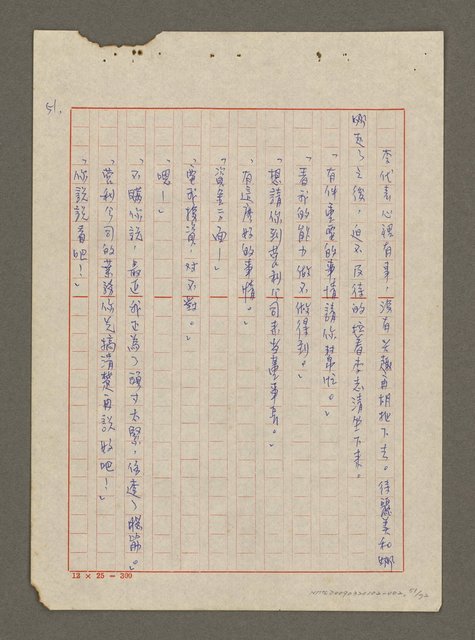 李代表心裡有事，沒有興趣再胡扯下去。待麗美和娜
娜走了之後，迫不及待的拉著李志清坐下來。
「有件重要的事情請你幫忙。」
「看我的能力做不做得到。」
「想請你到營利公司來當董事長。」
「有這麼好的事情。」
「資金方面！」
「要我投資，對不對。」
「嗯！」
「不瞞你說，最近我正為了頭寸太緊，傷透了腦筋。」
「營利公司的業務你先搞清楚再說好吧！」
「你說說看吧！」
51.
12 × 25 = 300
51/92